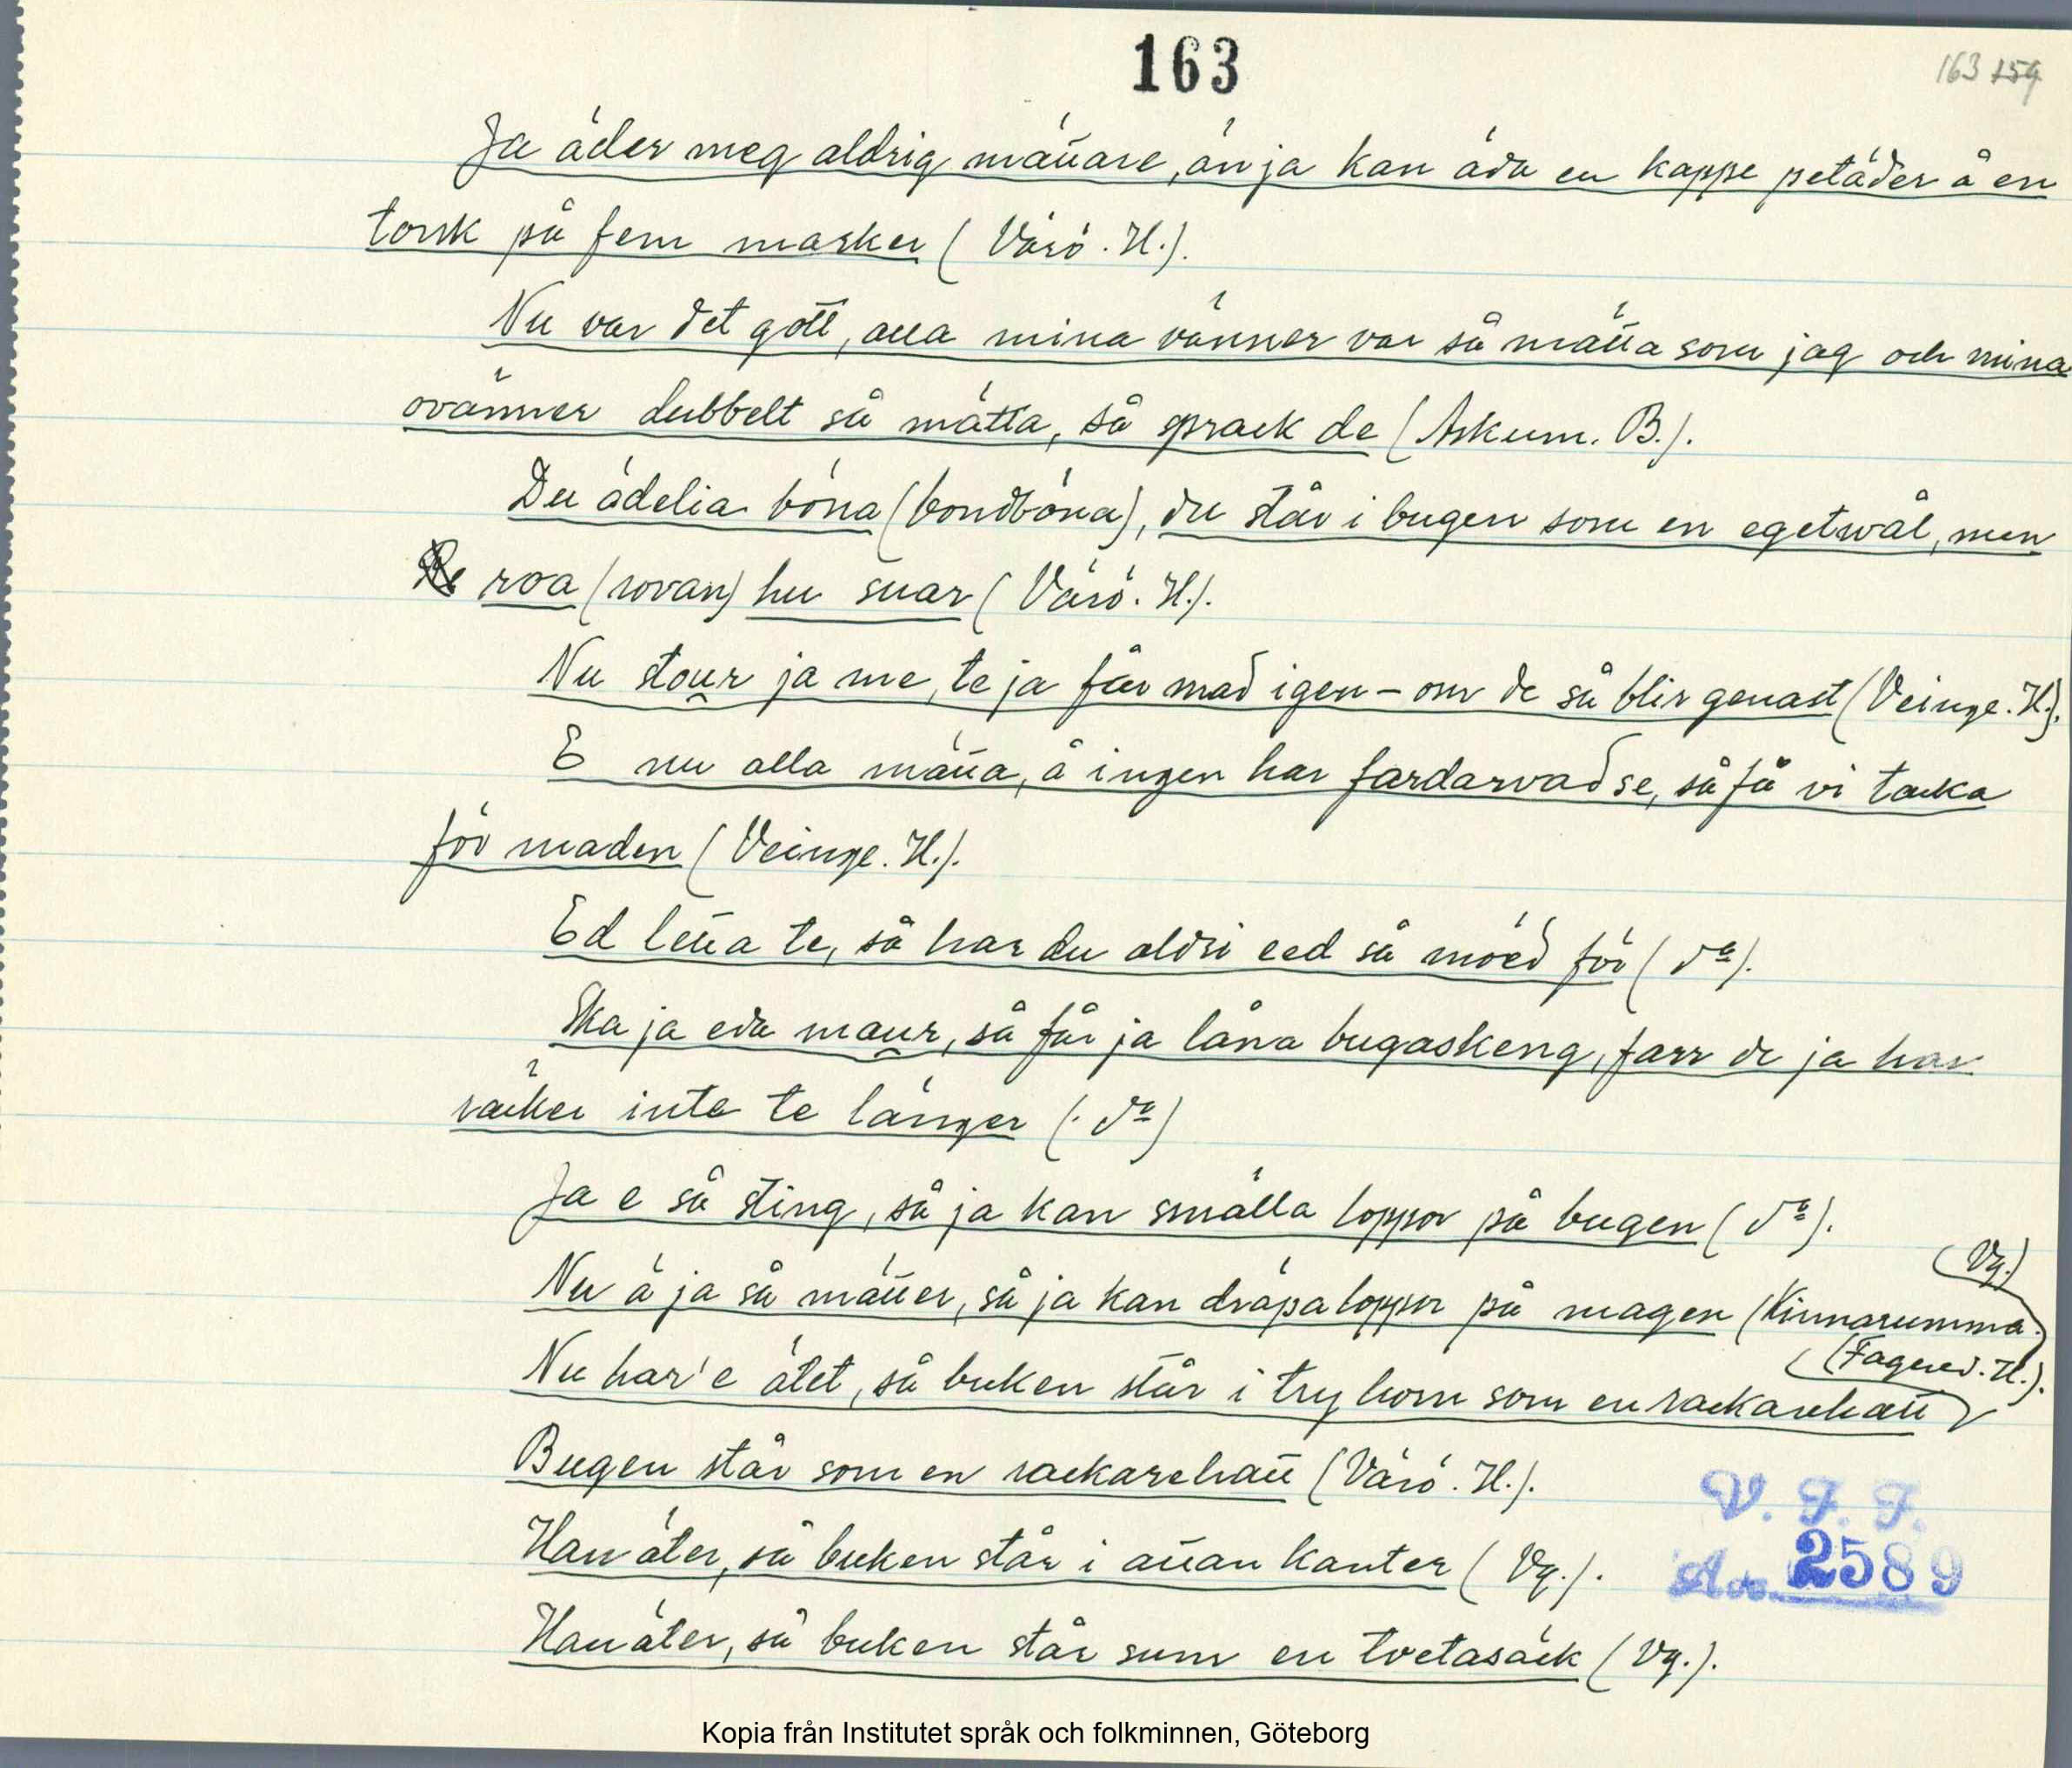 163
163 159
Ja äder meg aldrig mättare, än ja kan äda en kappe petäder å en
torsk på fem marker (Värö. H.).
Nu var det gott, alla mina vänner var så mätta som jag och mina
ovänner dubbelt så mätta, så sprack de (Askum. B.).
Du ädelia böna (bondböna), du står i bugen som en egetwål, men
roa (rovan) hu suar (Värö. H.).
Nu stour ja me, te ja får mad igen – om de så blir genast (Veinge. H.).
E nu alla mätta, å ingen har fardarvad se, så få vi tacka
för maden (Veinge. H.).
Ed letta te, så har du aldri eed så möed för (dº).
Ska ja eda maur, så får ja låna bugaskeng, farr de ja har
räcker inte te länger (dº)
Ja e så sting, så ja kan smälla loppor på bugen (dº).
(Vg.)
Nu ä ja så mätter, så ja kan dräpa loppor på magen (Kinnarumma.
(Fagered. H.).
Nu har'e ätet, så buken står i try horn som en rackarehatt
Bugen står som en rackarehatt (Värö. H.).
V. F. F.
Han äter, så buken står i attan kanter (Vg.).
2589
Han äter, så buken står sum en tvetasäck (Vg.).
Kopia från Institutet språk och folkminnen, Göteborg